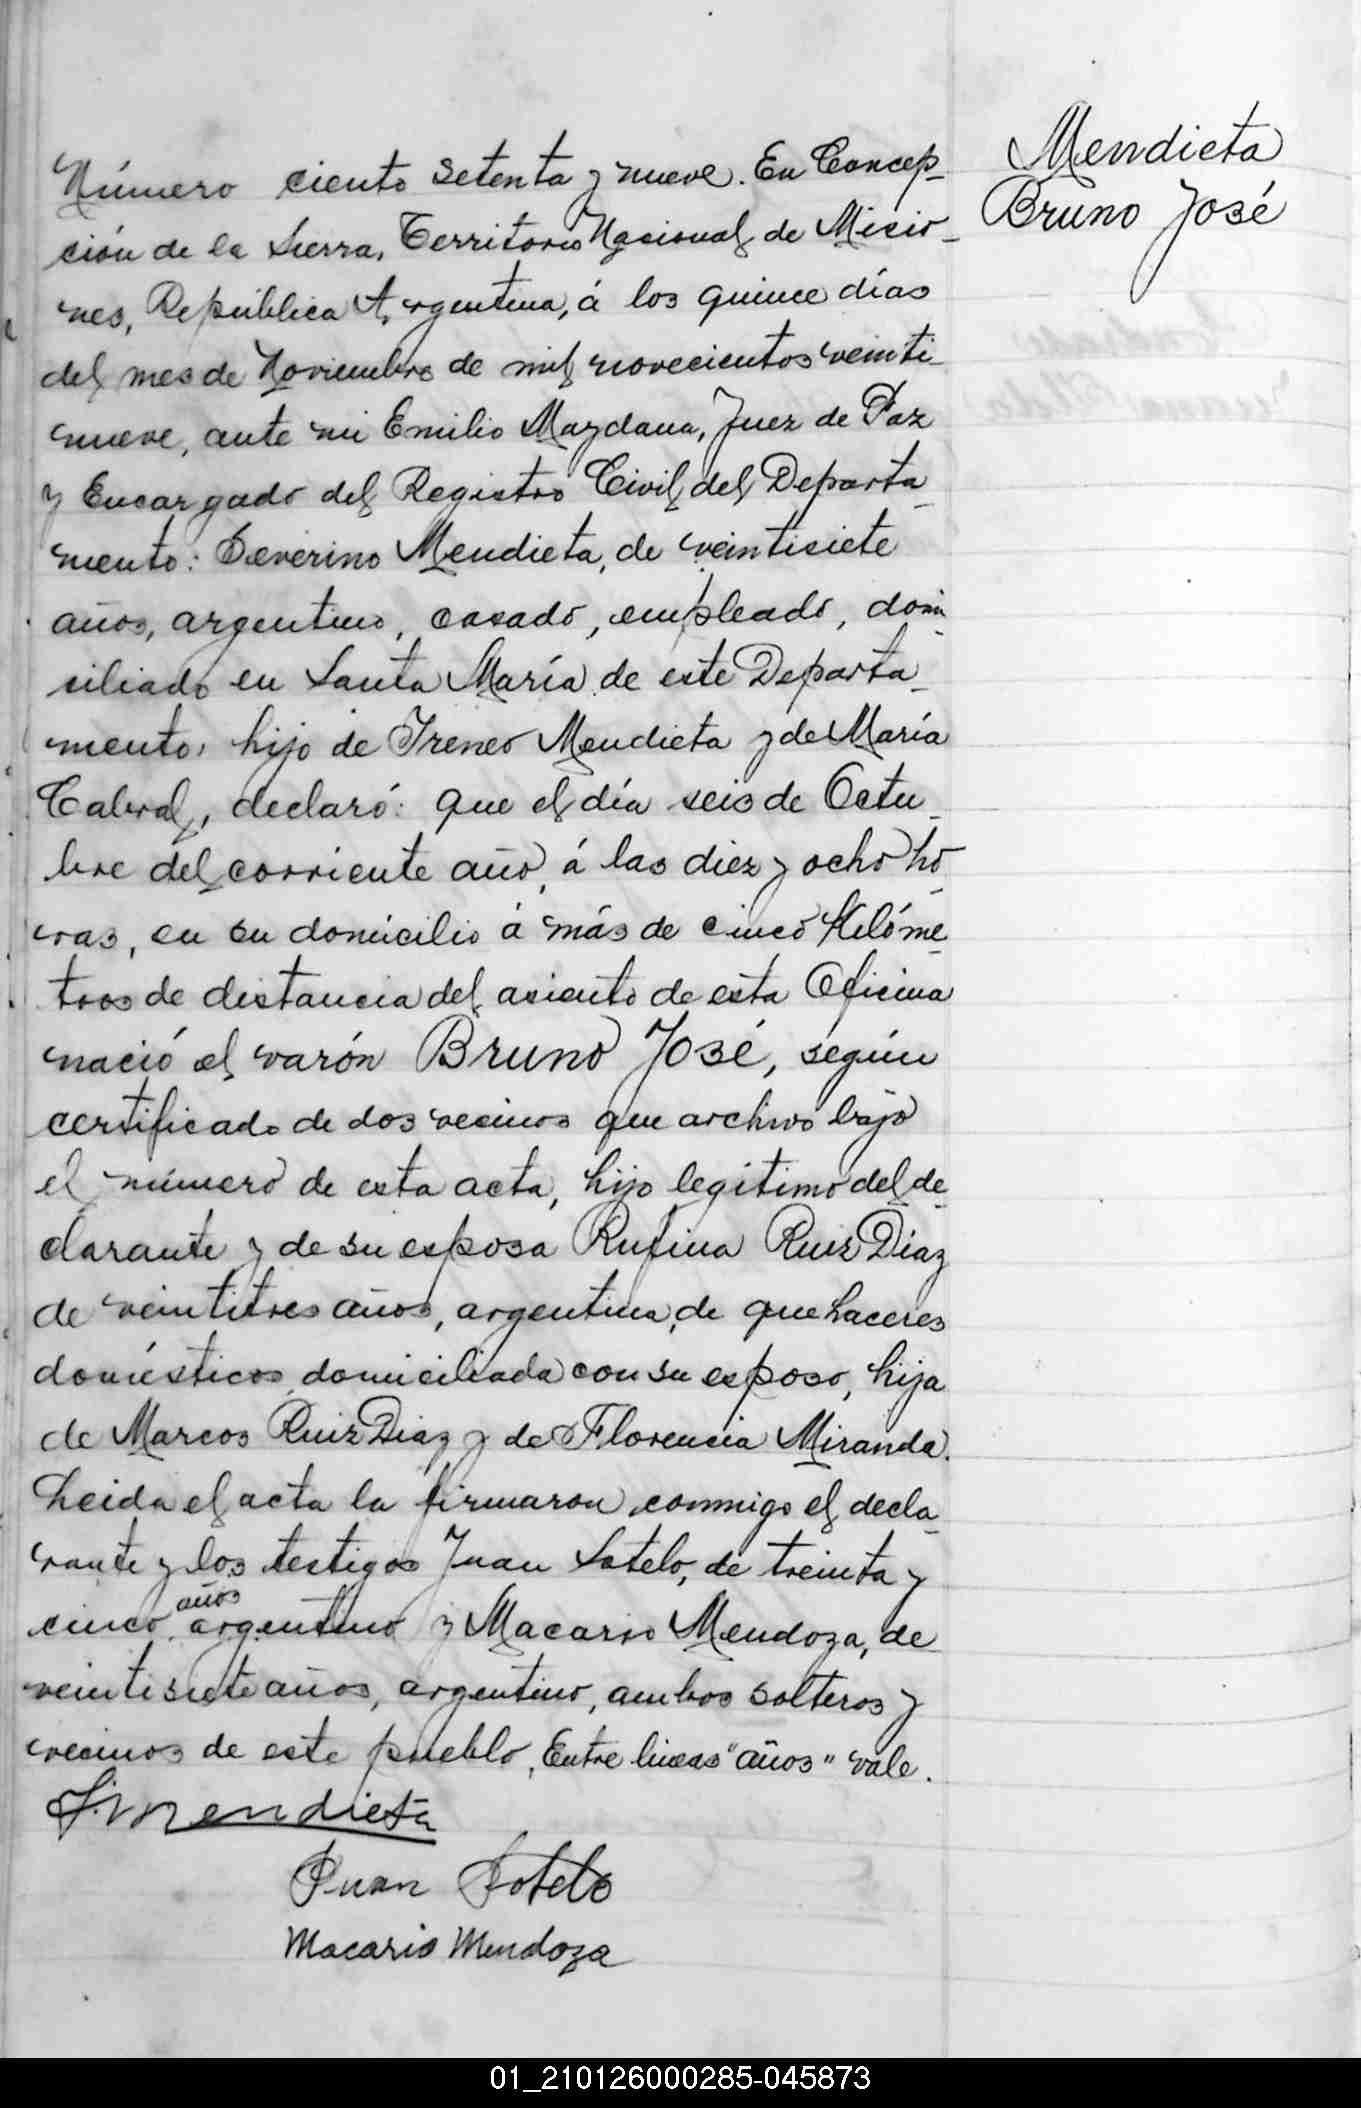 Mendieta
Bruno José
Número ciento setenta y nueve. En Concep-
ción de la Sierra, Territorio Nacional de Misio-
nes, República Argentina, á los quince días
del mes de Noviembre de mil novecientos veinti-
nueve, ante mi Emilio Maydana, Juez de Paz
y Encargado del Registro Civil del Departa-
mento: Severino Mendieta, de veintisiete
años, argentino, casado, empleado, domi-
ciliado en Santa María de este Departa-
mento, hijo de Ireneo Mendieta y de María
Cabral, declaró: que el día seis de Octu-
bre del corriente año, á las diez y ocho ho-
ras, en su domicilio á más de cinco Kilóme-
tros de distancia del asiento de esta Oficina
nació el varón Bruno José, según
certificado de dos vecinos que archivo bajo
el número de esta acta, hijo legítimo del de-
clarante y de su esposa Rufina Ruiz Diaz
de veintitres años, argentina, de quehaceres
domésticos, domiciliada con su esposo, hija
de Marcos Ruiz Diaz y de Florencia Miranda.
Leida el acta la firmaron conmigo el decla-
rante y los testigos Juan Sotelo, de treinta y
años
cinco, argentino y Macario Mendoza, de
veintisiete años, argentino, ambos solteros y
vecinos de este pueblo, Entre lineas "años" vale.
S. Mendieta
Juan Sotelo
Macario Mendoza
01_210126000285-045873